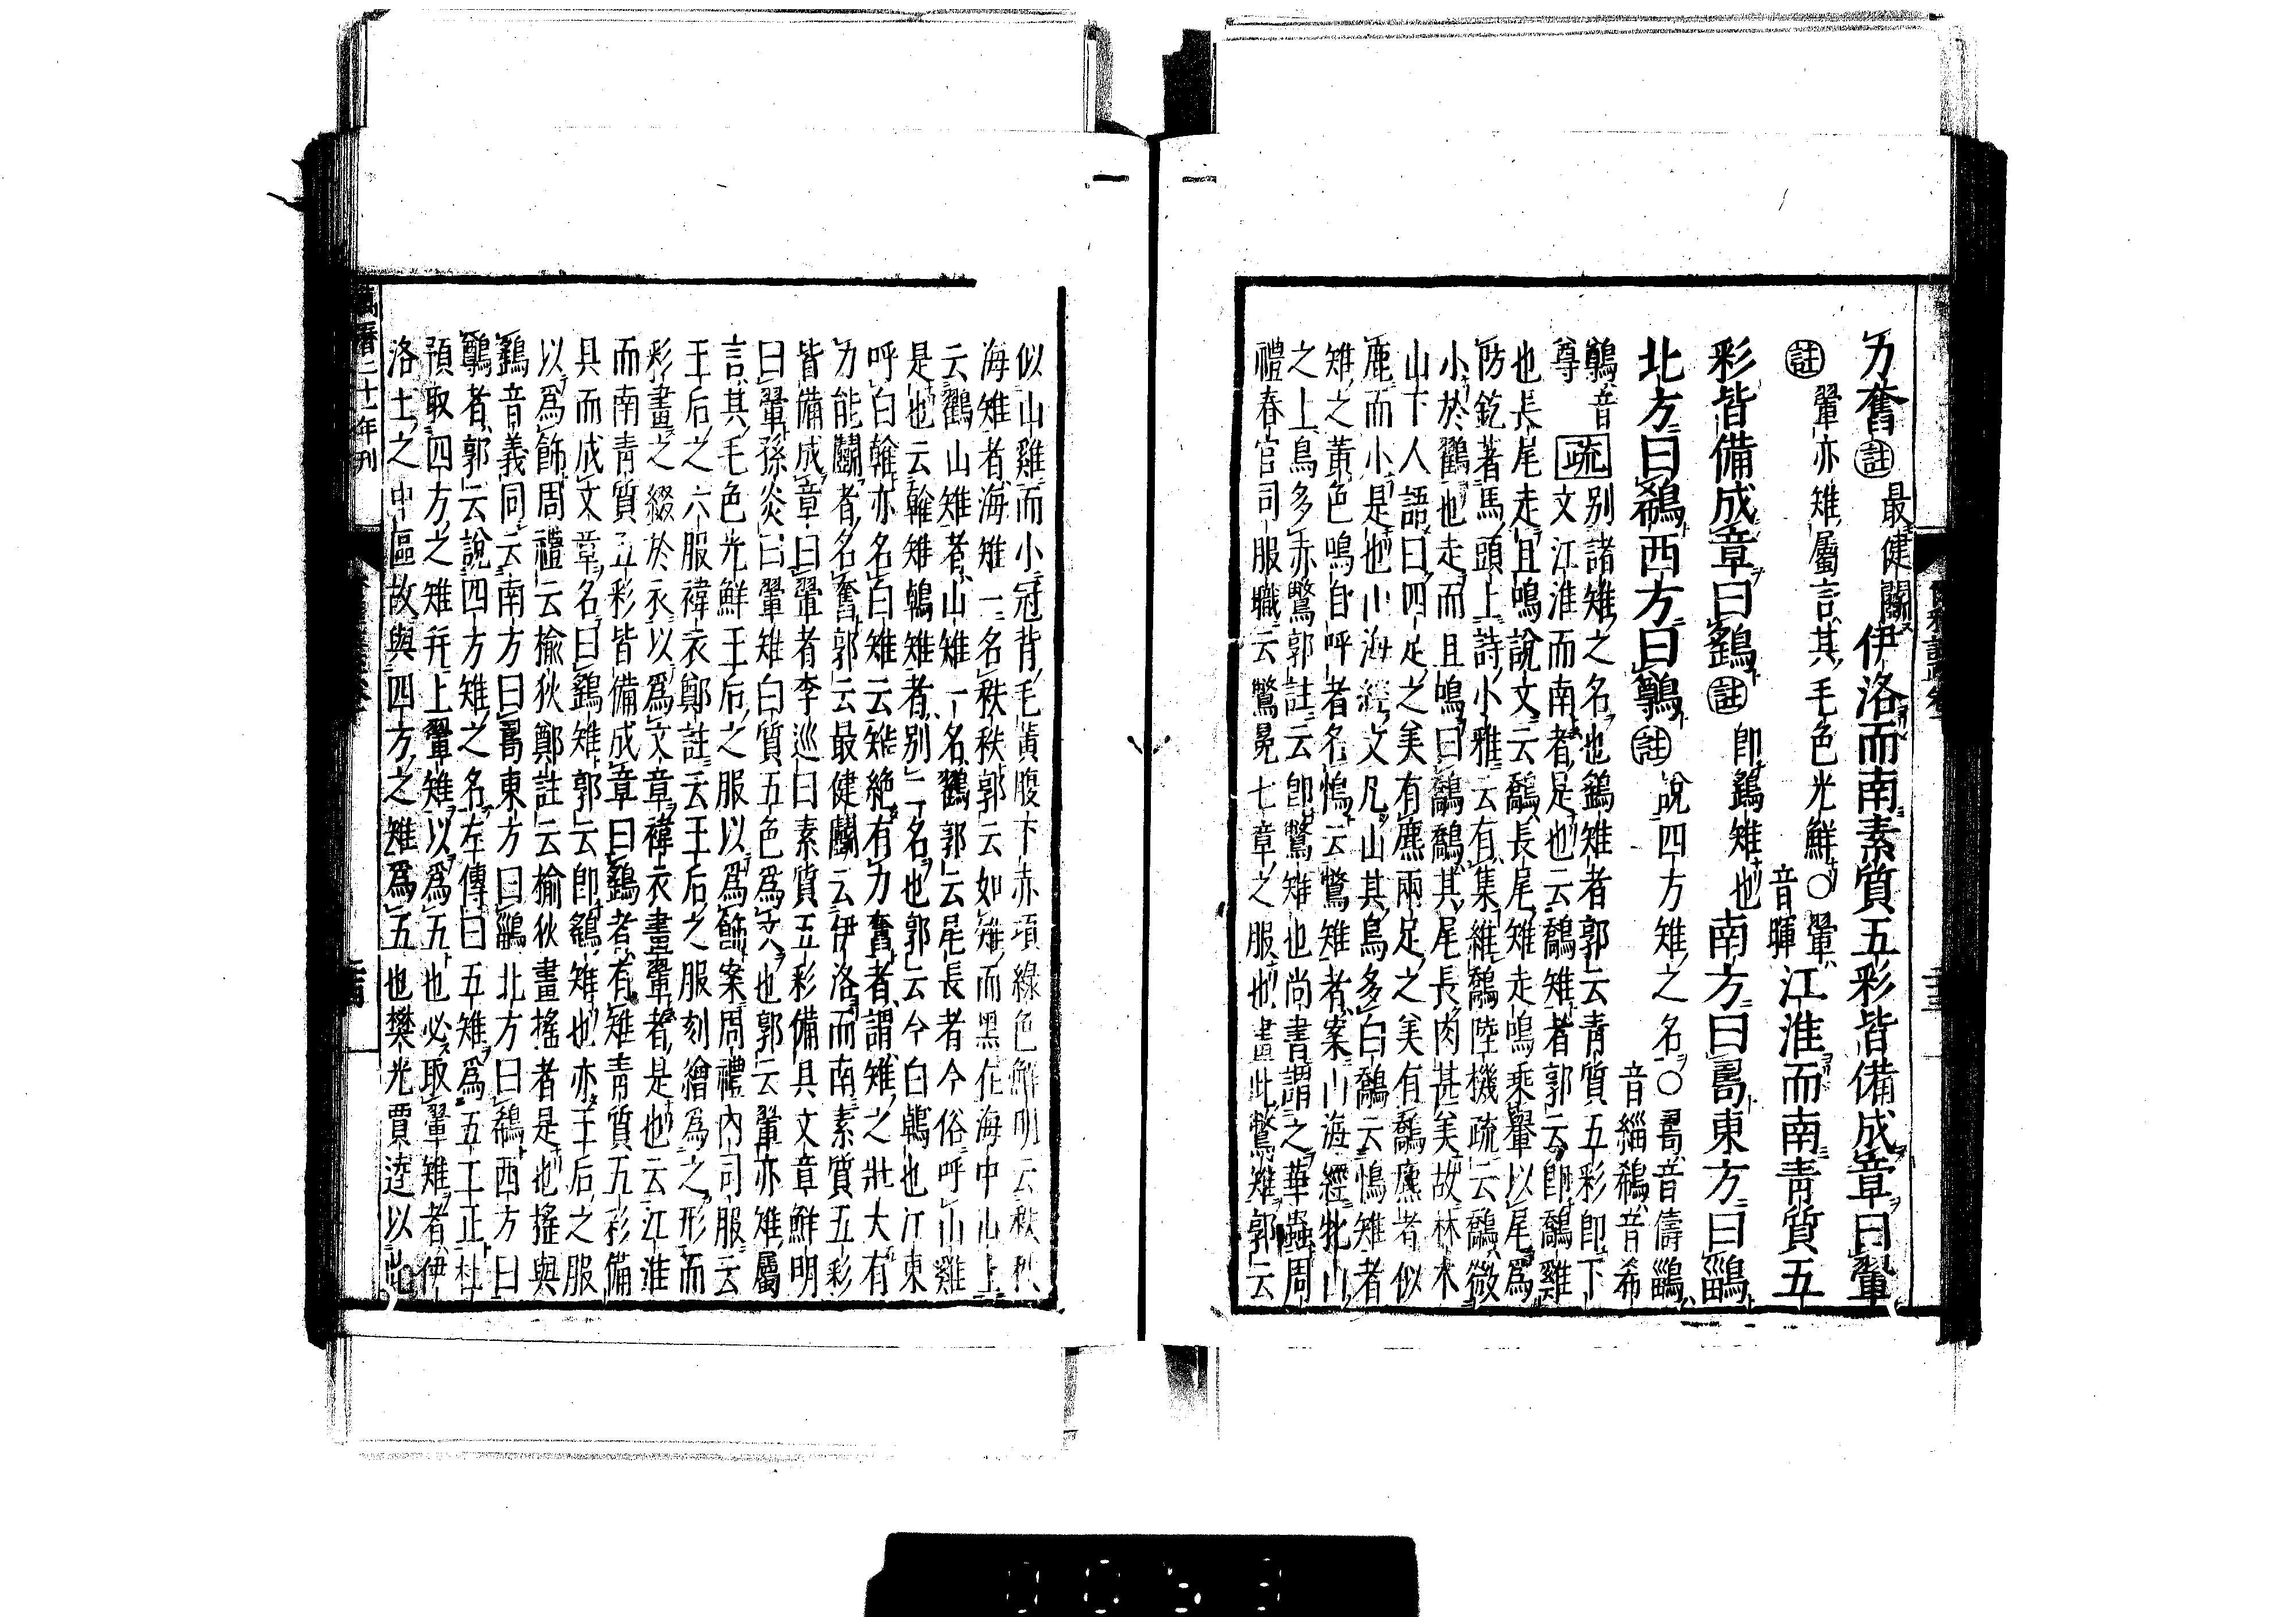 力奮註最健鬬伊洛而南素質五彩皆備成章曰翬
註翬亦雉屬言其毛色光鮮○翬音暉江淮而南青質五
彩皆備成章曰鷂註卽鷂雉也南方曰𠷎東方曰鶅
北方曰鵗西方曰鷷註說四方雉之名○𠷎音儔鶅音緇鵗音希
鷷音尊疏別諸雉之名也鷂雉者郭云青質五彩卽下
文江淮而南者是也云鷮雉者郭云卽鷮雞
也長尾走且鳴說文云鷮長尾雉走鳴乘轝以尾爲
防釳著馬頭上詩小雅云有集維鷮陸機疏云鷮微
小於鸐也走而且鳴曰鷮鷮其尾長肉甚美故林木
山下人語曰四足之美有麃兩足之美有鷮麃者似
鹿而小是也山海經文凡山其鳥多白鷮云鳪雉者
雉之黃色鳴自呼者名鳪云鷩雉者案山海經牡山
之上鳥多赤鷩郭註云卽鷩雉也尚書謂之華蟲周
禮春官司服職云鷩冕七章之服也畫此鷩雉郭云
似山雞而小冠背毛黃腹下赤項綠色鮮明云秩秩
海雉者海雉一名秩秩郭云如雉而黑在海中山上
云鸐山雉者山雉一名鸐郭云尾長者今俗呼山雞
是也云雗雉鵫雉者別二名也郭云今白鵫也江東
呼白雗亦名白雉云雉絶有力奮者謂雉之壯大有
力能鬬者名奮郭云最健鬬云伊洛而南素質五彩
皆備成章曰翬者李巡曰素質五彩備具文章鮮明
曰翬孫炎曰翬雉白質五色爲文也郭云翬亦雉屬
言其毛色光鮮王后之服以爲飾案周禮內司服云
王后之六服褘衣鄭註云王后之服刻繒爲之形而
彩畫之綴於衣以爲文章褘衣畫翬者是也云江淮
而南青質五彩皆備成章曰鷂者有雉青質五彩備
具而成文章名曰鷂雉郭云卽鷂雉也亦王后之服
以爲飾周禮云揄狄鄭註云揄狄畫搖者是也搖與
鷂音義同云南方曰𠷎東方曰鶅北方曰鵗西方曰
鷷者郭云說四方雉之名左傳曰五雉爲五工正杜
預取四方之雉幷上翬雉以爲五也必取翬雉者伊
洛土之中區故與四方之雉爲五也樊光賈逵以此
萬曆二十一年刊